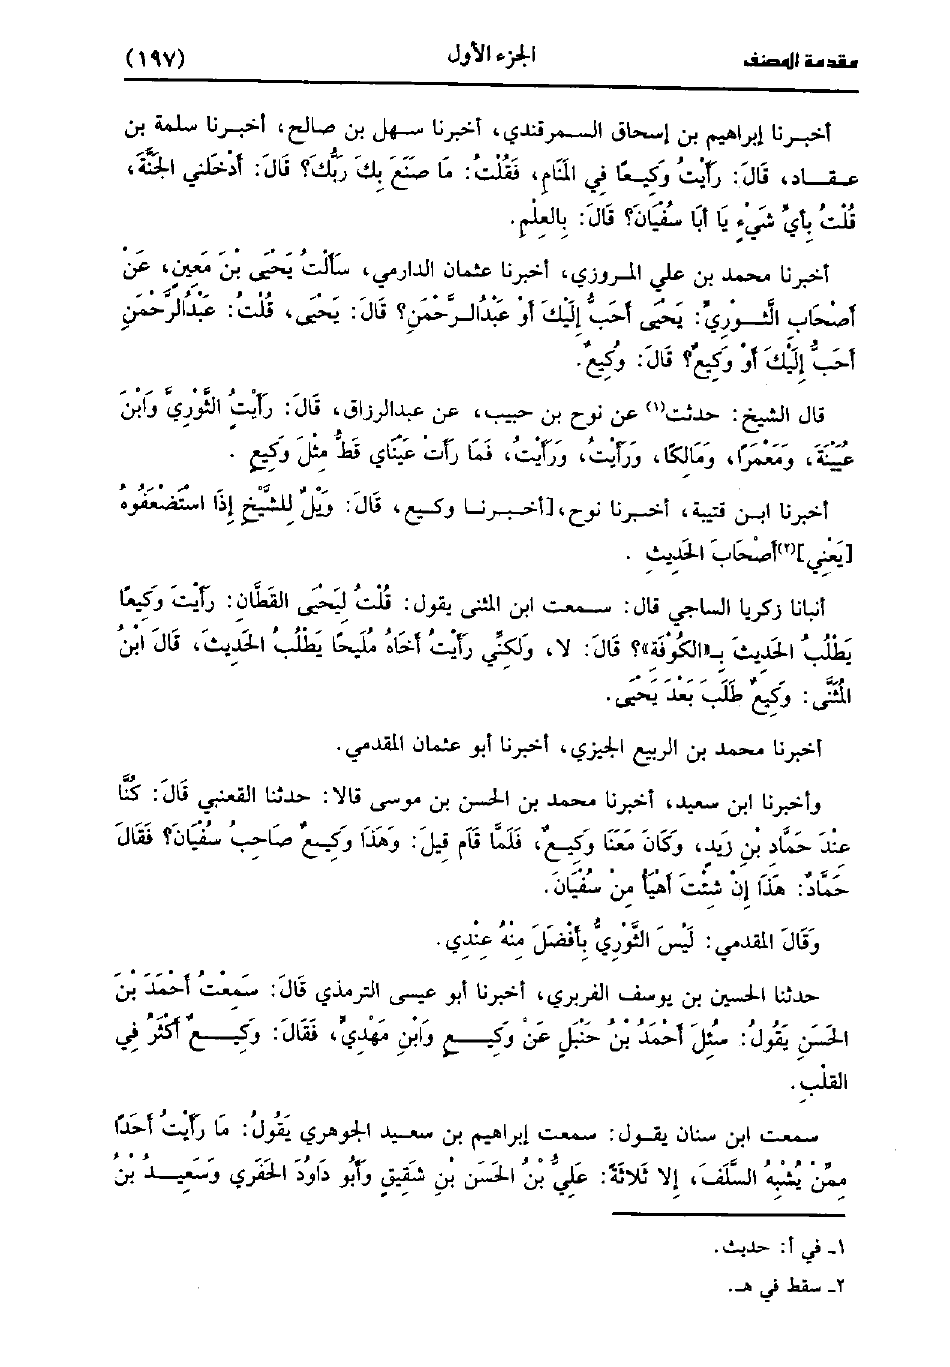 مقدمة المصنف الجزء الأول (١٩٧)
أخبرنا إبراهيم بن إسحاق السمرقندي، أخبرنا سهل بن صالح، أخبرنا سلمة بن
عقاد، قَالَ: رَأَيْتُ وَكِيعًا فِي المَنَامِ، فَقُلْتُ: مَا صَنَعَ بِكَ رَبُّكَ؟ قَالَ: أَدْخَلَنِي الجَنَّةَ،
قُلْتُ بِأَيِّ شَيْءٍ يَا أَبَا سُفْيَانَ؟ قَالَ: بِالعِلْمِ.
أخبرنا محمد بن علي المروزي، أخبرنا عثمان الدارمي، سَأَلْتُ يَحْيَى بْنَ مَعِينٍ، عَنْ
أَصْحَابِ الثَّوْرِيِّ: يَحْيَى أَحَبُّ إِلَيْكَ أَوْ عَبْدُالرَّحْمَنِ؟ قَالَ: يَحْيَى، قُلْتُ: عَبْدُالرَّحْمَنِ
أَحَبُّ إِلَيْكَ أَوْ وَكِيعٌ؟ قَالَ: وَكِيعٌ.
قال الشيخ: حدثت(١) عن نوح بن حبيب، عن عبدالرزاق، قَالَ: رَأَيْتُ الثَّوْرِيَّ وَابْنَ
عُيَيْنَةَ، وَمَعْمَرًا، وَمَالِكًا، وَرَأَيْتُ، وَرَأَيْتُ، فَمَا رَأَتْ عَيْنَاي قَطُّ مِثْلَ وَكِيعٍ .
أخبرنا ابن قتيبة، أخبرنا نوح،[أخبرنا وكيع، قَالَ: وَيْلٌ لِلشَّيْخِ إِذَا اسْتَضْعَفُوهُ
[يَعْنِي](٢)أَصْحَابَ الحَدِيثِ .
أنبانا زكريا الساجي قال: سمعت ابن المثنى يقول: قُلْتُ لِيَحْيَى القَطَّان: رَأَيْتَ وَكِيعًا
يَطْلُبُ الحَدِيثَ بِـ«الكُوفَة»؟ قَالَ: لا، وَلَكِنِّي رَأَيْتُ أَخَاهُ مُلَيحًا يَطْلُبُ الحَدِيثَ، قَالَ ابْنُ
المُثَنَّى: وَكِيعٌ طَلَبَ بَعْدَ يَحْيَى.
أخبرنا محمد بن الربيع الجيزي، أخبرنا أبو عثمان المقدمي.
وأخبرنا ابن سعيد، أخبرنا محمد بن الحسن بن موسى قالا: حدثنا القعنبي قَالَ: كُنَّا
عِنْدَ حَمَّادِ بْنِ زَيدٍ، وَكَانَ مَعَنَا وَكِيعٌ، فَلَمَّا قَامَ قِيلَ: وَهَذَا وَكِيعٌ صَاحِبُ سُفْيَانَ؟ فَقَالَ
حَمَّادٌ: هَذَا إِنْ شِئْتَ أَهْيَأُ مِنْ سُفْيَانَ.
وَقَالَ المقدمي: لَيْسَ الثَّوْرِيُّ بِأَفْضَلَ مِنْهُ عِنْدِي.
حدثنا الحسين بن يوسف الفربري، أخبرنا أبو عيسى الترمذي قَالَ: سَمِعْتُ أَحْمَدَ بْنَ
الحَسَنِ يَقُولُ: سُئِلَ أَحْمَدُ بْنُ حَنْبَلٍ عَنْ وَكِيعٍ وَابْنِ مَهْدِيٍّ، فَقَالَ: وَكِيعٌ أَكْثَرُ فِي
القَلْبِ.
سمعت ابن سنان يقول: سمعت إبراهيم بن سعيد الجوهري يَقُولُ: مَا رَأَيْتُ أَحَدًا
مِمَّنْ يُشْبِهُ السَّلَفَ، إِلا ثَلَاثَةً: عَلِيُّ بْنُ الحَسَنِ بْنِ شَقِيقٍ وَأَبُو دَاوُدَ الحَفَرِي وَسَعِيدُ بْنُ
١ـ في أ: حديث.
٢ـ سقط في هـ.